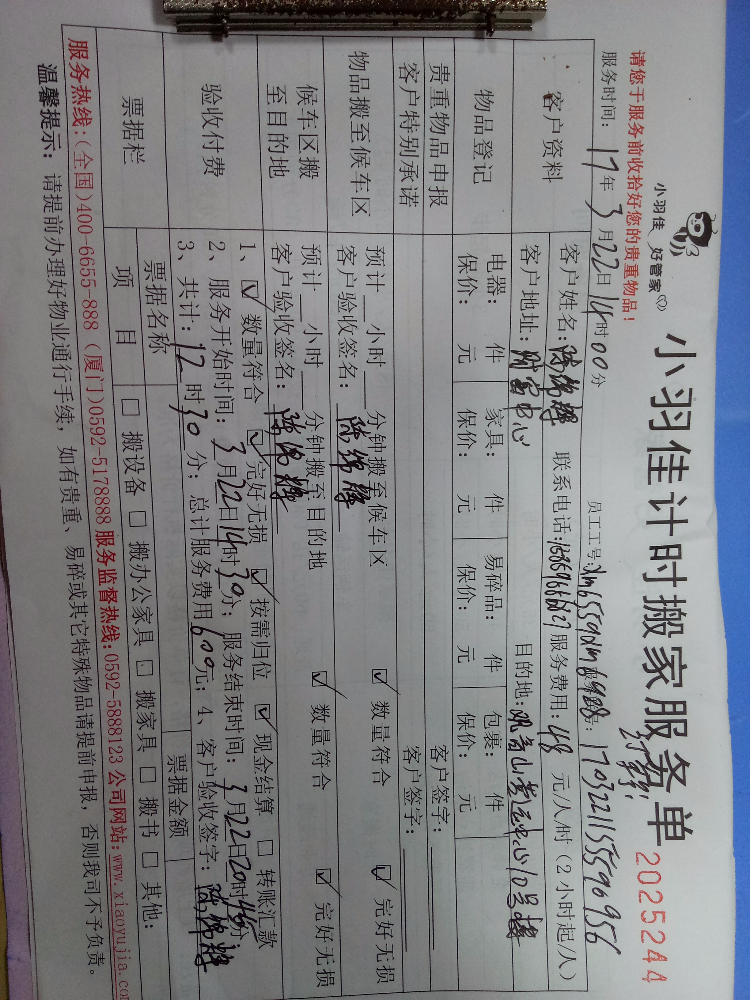 小羽佳 好管家
小羽佳计时搬家服务单 2025244
请您于服务前收拾好您的贵重物品！
服务时间：17年3月22日14时00分 员工工号：
订单号：170322115590956
客户资料
客户姓名： 联系电话： 服务费用：48元/人/时（2小时起/人）
客户地址：财富中心 目的地：观音山营运中心10号楼
物品登记
电器： 件 家具： 件 易碎品： 件 包裹： 件
保价： 元 保价： 元 保价： 元 保价： 元
贵重物品申报 客户签字：
客户特别承诺 客户签字：
物品搬至候车区
预计__小时__分钟搬至候车区 ☑数量符合 ☑完好无损
客户验收签名：
候车区搬至目的地
预计__小时__分钟搬至目的地 ☑数量符合 ☑完好无损
客户验收签名：
验收付费
1、☑数量符合 ☑完好无损 ☑按需归位 ☑现金结算 □转账汇款
2、服务开始时间：3月22日14时30分；服务结束时间：3月22日20时45分
3、共计：12时30分；总计服务费用600元；4、客户验收签字：
票据栏
票据名称 票据金额
项目 □搬设备 □搬办公家具 □搬家具 □搬书 □其他：
服务热线：(全国)400-6655-888 (厦门)0592-5178888 服务监督热线：0592-5888123 公司网站：www.xiaoyujia.com
温馨提示：请提前办理好物业通行手续，如有贵重、易碎或其它特殊物品请提前申报，否则我司不予负责。